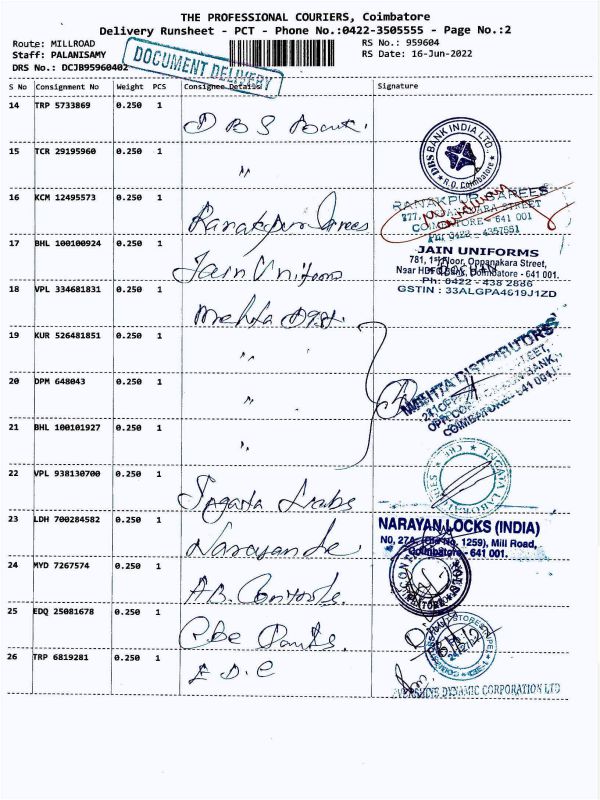 THE PROFESSIONAL COURIERS, Coimbatore
Delivery Runsheet - PCT - Phone No.:0422-3505555 - Page No.:2
Route: MILLROAD
RS No.: 959604
Staff: PALANISAMY
RS Date: 16-Jun-2022
DRS No.: DCJB95960402
DOCUMENT DELIVERY
S No Consignment No Weight PCS Consignee Details Signature
14 TRP 5733869 0.250 1 DBS Bank.
DBS BANK INDIA LTD.,
R.O. Coimbatore
15 TCR 29195960 0.250 1 "
16 KCM 12495573 0.250 1 Ranakpur Sarees
RANAKPUR SAREES
COIMBATORE - 641 001
PH: 0422 - 4357551
17 BHL 100100924 0.250 1 Jain Uniforms
JAIN UNIFORMS
781, 1st Floor, Oppanakara Street,
Near HDFC Bank, Coimbatore - 641 001.
Ph: 0422 - 438 2886
GSTIN : 33ALGPA4619J1ZD
18 VPL 334681831 0.250 1 Mehta Dist.
19 KUR 526481851 0.250 1 "
20 DPM 648043 0.250 1 "
MEHTA DISTRIBUTORS
COIMBATORE - 641 001.
21 BHL 100101927 0.250 1 "
22 VPL 938130700 0.250 1
23 LDH 700284582 0.250 1
NARAYAN LOCKS (INDIA)
NO, 27A, (Old No. 1259), Mill Road,
Coimbatore - 641 001.
24 MYD 7267574 0.250 1 A.B. Controls.
25 EDQ 25081678 0.250 1
26 TRP 6819281 0.250 1 E.D.C
DYNAMIC CORPORATION LTD